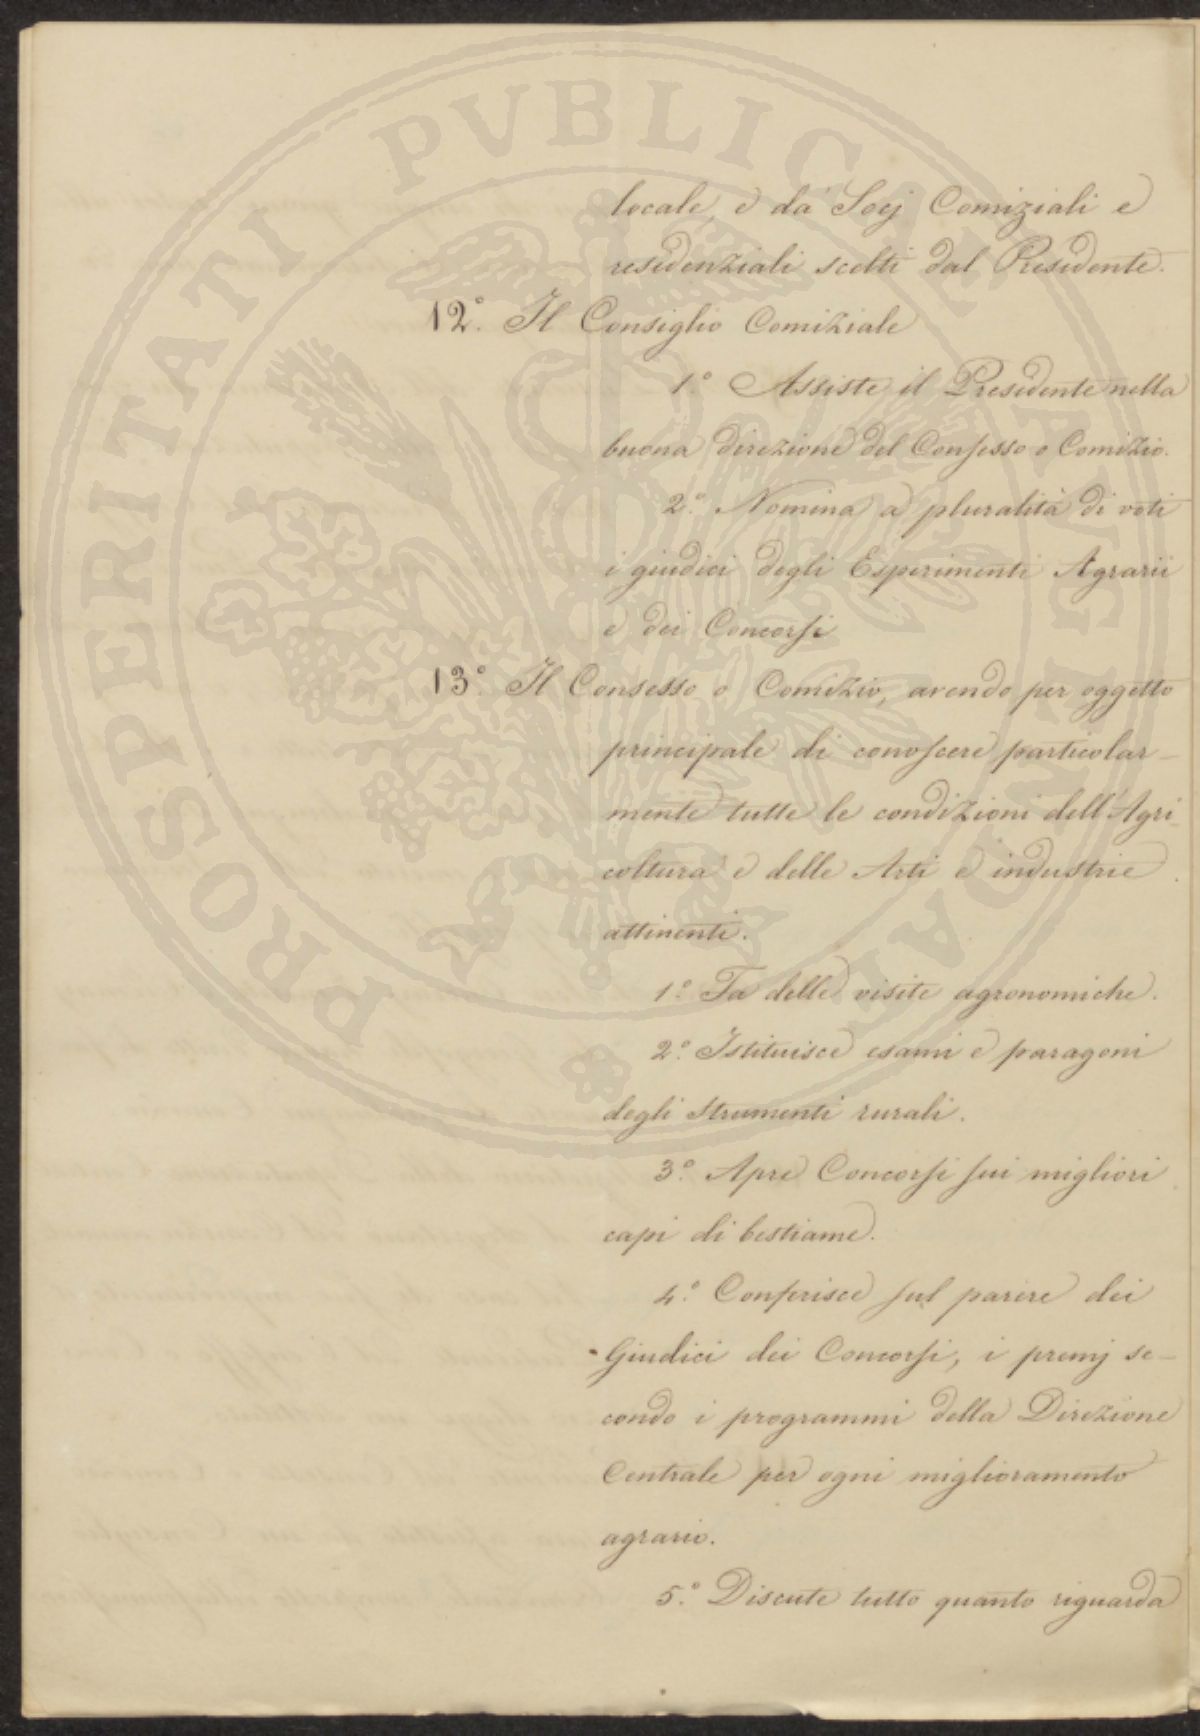 locale, e da' Socj Comiziali e
residenziali scelti dal Presidente.
12.° Il Consiglio Comiziale
1.° Assiste il Presidente nella
buona direzione del Consesso o Comizio.
2.° Nomina a pluralità di voti
i giudici degli Esperimenti Agrarii
e dei Concorsi
13.° Il Consesso o Comizio, avendo per oggetto
principale di conoscere particolar-
mente tutte le condizioni dell'Agri-
coltura e delle Arti e industrie
attinenti.
1.° Fa delle visite agronomiche.
2.° Istituisce esami e paragoni
degli strumenti rurali.
3.° Apre Concorsi sui migliori
capi di bestiame.
4.° Conferisce sul parere dei
Giudici dei Concorsi, i premj se-
condo i programmi della Direzione
Centrale per ogni miglioramento
agrario.
5.° Discute tutto quanto riguarda
PROSPERITATI PVBLICAE AVGENDAE